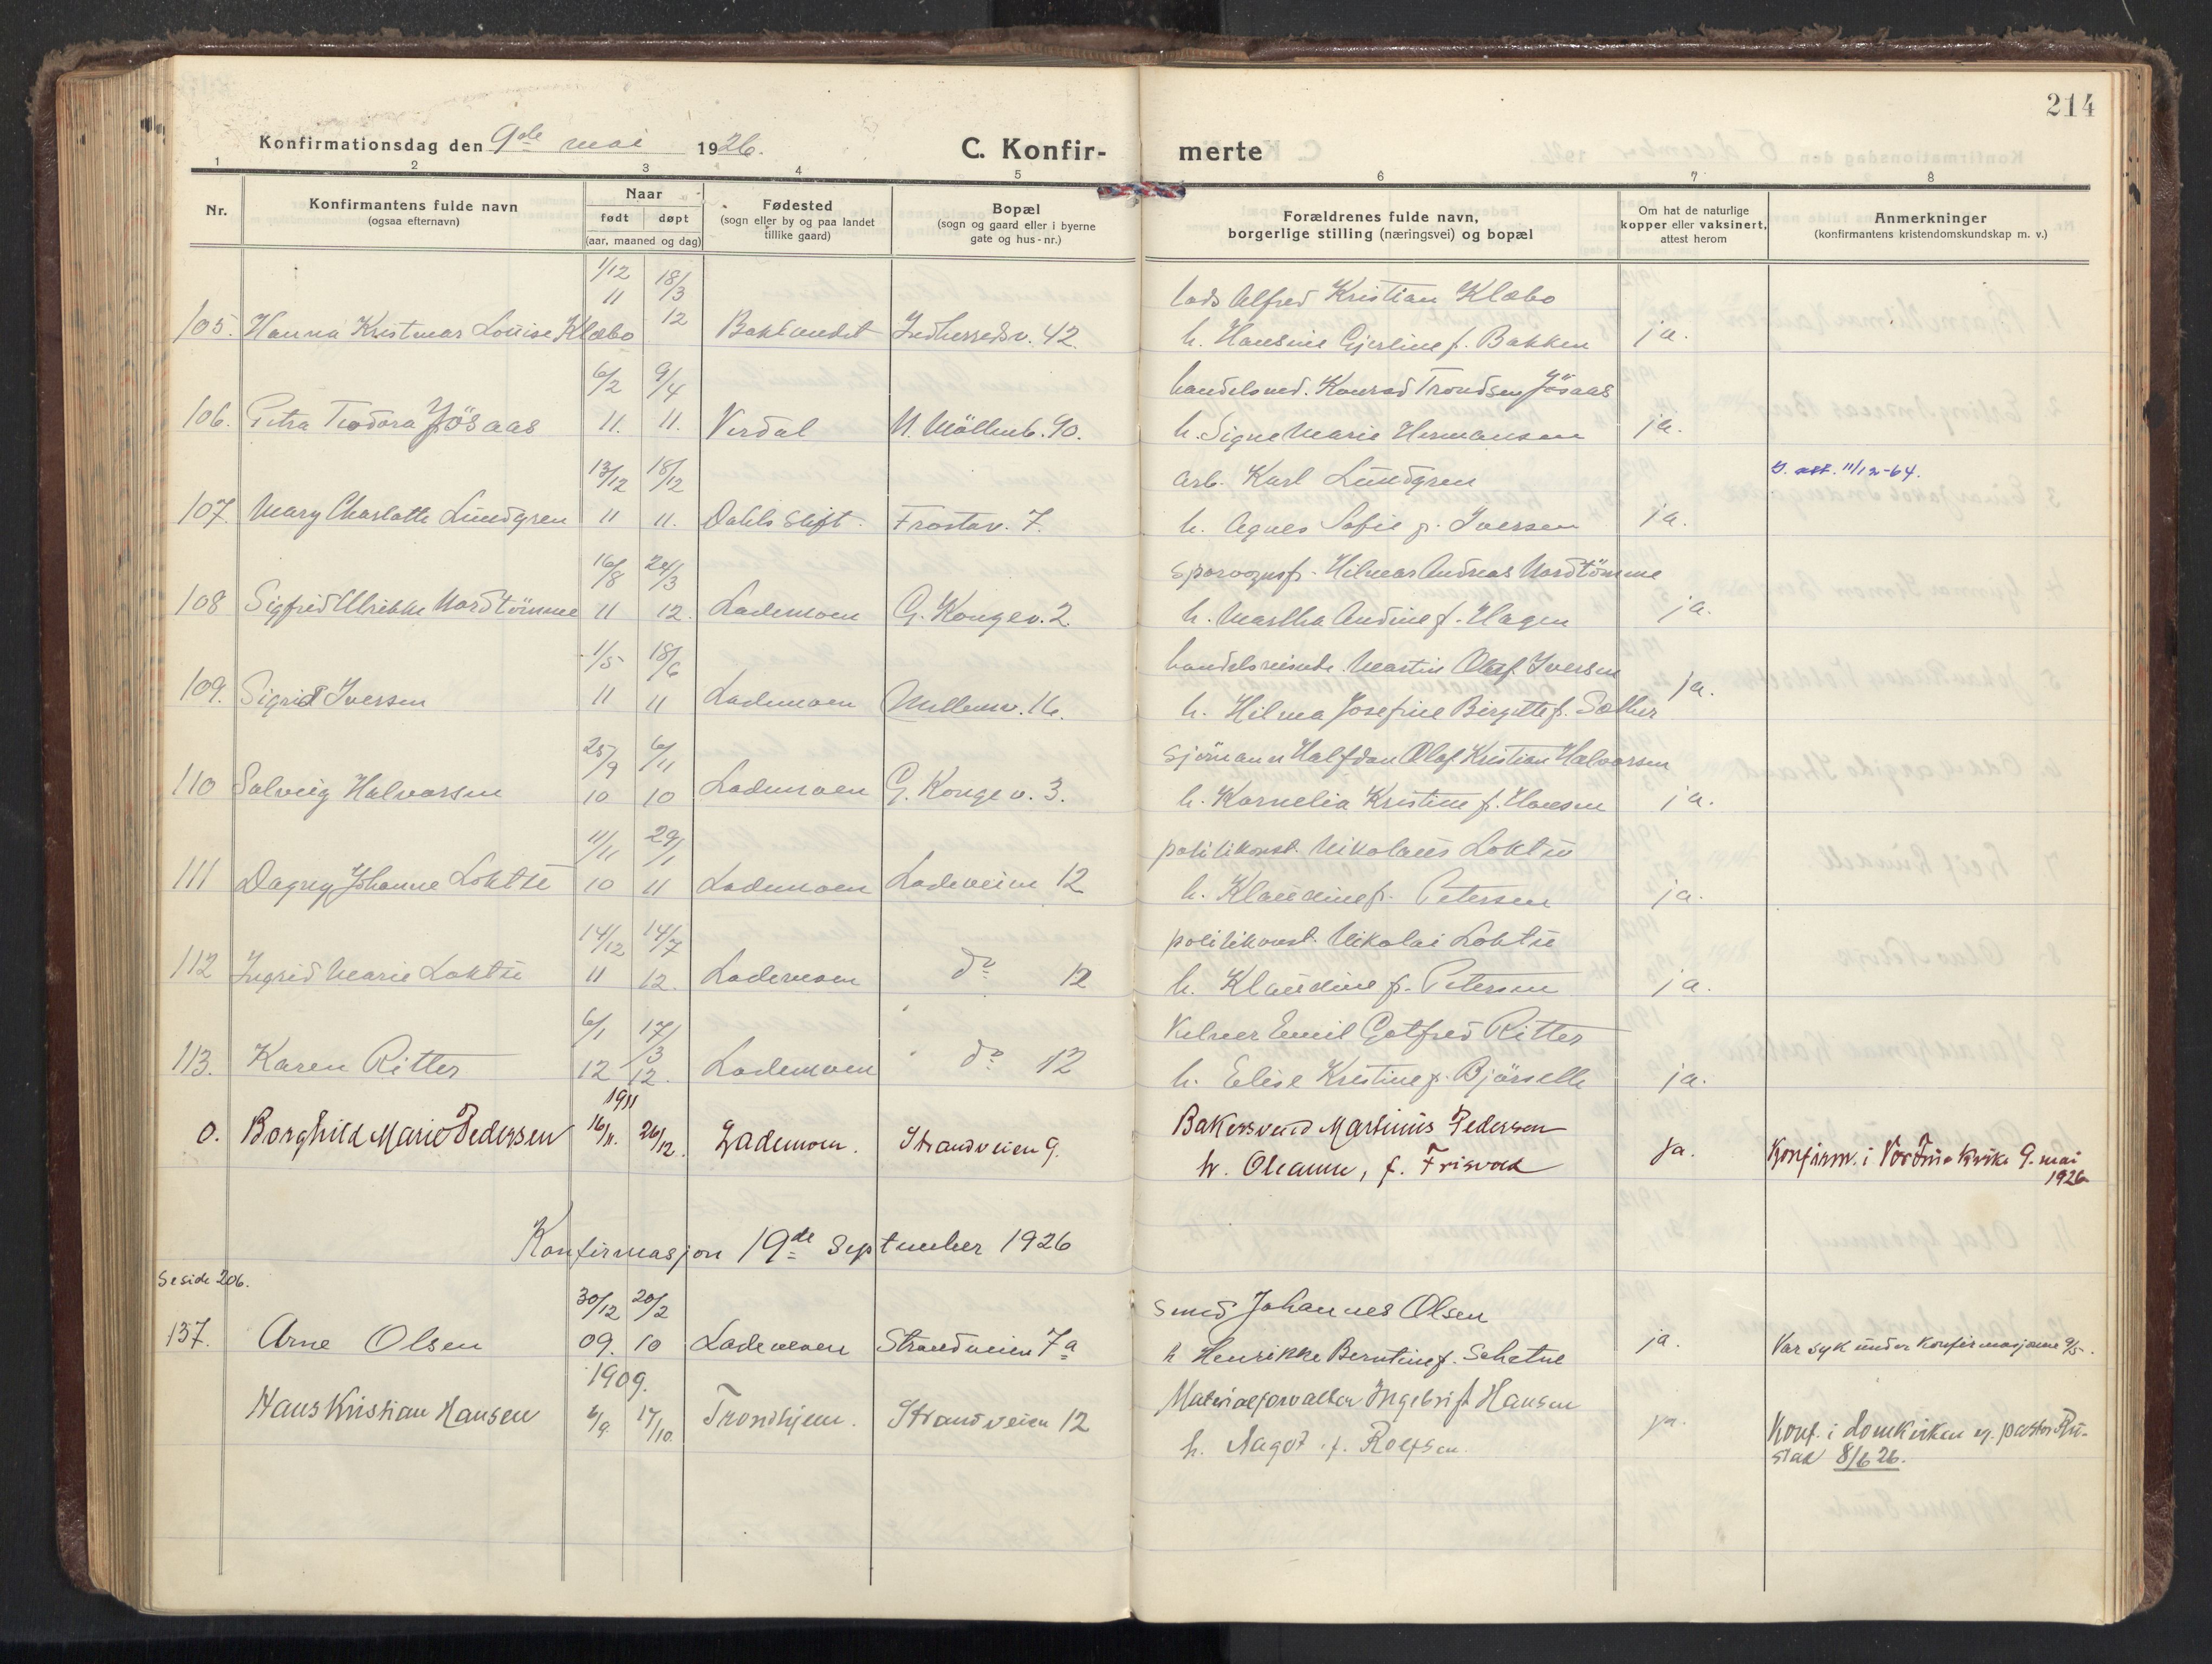 214
Konfirmationsdag den 9de mai 1926. C. Konfir- merte
1 2 3 4 5 6 7 8
Nr.
Konfirmantens fulde navn
(ogsaa efternavn)
Naar
født døpt
(aar, maaned og dag)
Fødested
(sogn eller by og paa landet
tillike gaard)
Bopæl
(sogn og gaard eller i byerne
gate og hus-nr.)
Forældrenes fulde navn,
borgerlige stilling (næringsvei) og bopæl
Om hat de naturlige
kopper eller vaksinert,
attest herom
Anmerkninger
(konfirmantens kristendomskundskap m. v.)
1/12 18/3 Alfred Kristian Klæbo
11 12
105. Hanna Kristmar Louise Klæbo Baklandet Indherredsv. 42. h. Hansine Gjertine f. Bakken ja.
6/2 9/4 handelsmd. Konrad Trondsen Jösaas
106. Petra Teodora Jösaas 11. 11. Verdal N. Möllenb. 90. h. Signe Marie Hermansen ja.
13/12 18/12 arb. Karl Lundgren D. att. 11/12-64.
107. Mary Charlotte Lundgren 11 11. Dahls Stift. Frostav. 7. h. Agnes Sofie f. Iversen ja.
16/8 24/3 Sporvognsf. Hilmar Andreas Nordtömme
108 Sigfrid Ulrikke Nordtömme 11 12. Lademoen G. Kongev. 2. h. Martha Andine f. Hagen ja.
1/5 18/6 handelsreisende Martin Olaf Iversen
109. Sigrid Iversen 11 11 Lademoen Mellemv. 16. h. Hilma Josefine Birgitte f. Sæther ja.
25/9 6/11 Sjömann Halfdan Olaf Kristian Halvorsen
110 Solveig Halvorsen 10 10 Lademoen G. Kongev. 3. h. Kornelia Kristine f. Hansen ja.
11/11 29/1 politikonst. Nikolaus Loktu
111 Dagny Johanne Loktu 10 11 Lademoen Ladeveien 12 h. Klaudine f. Petersen ja.
14/12 14/7 politikonst. Nikolai Loktu
112 Ingrid Marie Loktu 11 12. Lademoen do 12 h. Klaudine f. Petersen ja.
6/1 17/3 Kelner Emil Gotfred Ritter
113. Karen Ritter 12 12. Lademoen do 12 h. Elise Kristine f. ja.
1911
0. Borghild Marie Pedersen 16/11. 26/12. Lademoen. Strandveien 9. Bakersvend Martinius Pedersen
h. Oleanne, f. Frisvold ja. Konfirm. i Vor Frue Kirke 9. mai
1926
Konfirmasjon 19de September 1926
Se side 206.
30/12 20/2 Smed Johannes Olsen
137. Arne Olsen 09. 10 Lademoen Strandveien 7a h Henrikke Berntine f. Schetne ja. Var syk under Konfirmasjonen 9/5.
1909.
Hans Kristian Hansen 6/9. 17/10. Trondhjem. Strandveien 12 Materialforvalter Ingebrigt Hansen
h. Aagot f. Rolfsen. ja. Konf. i Domkirken v. pastor Ru-
stad 8/6 26.